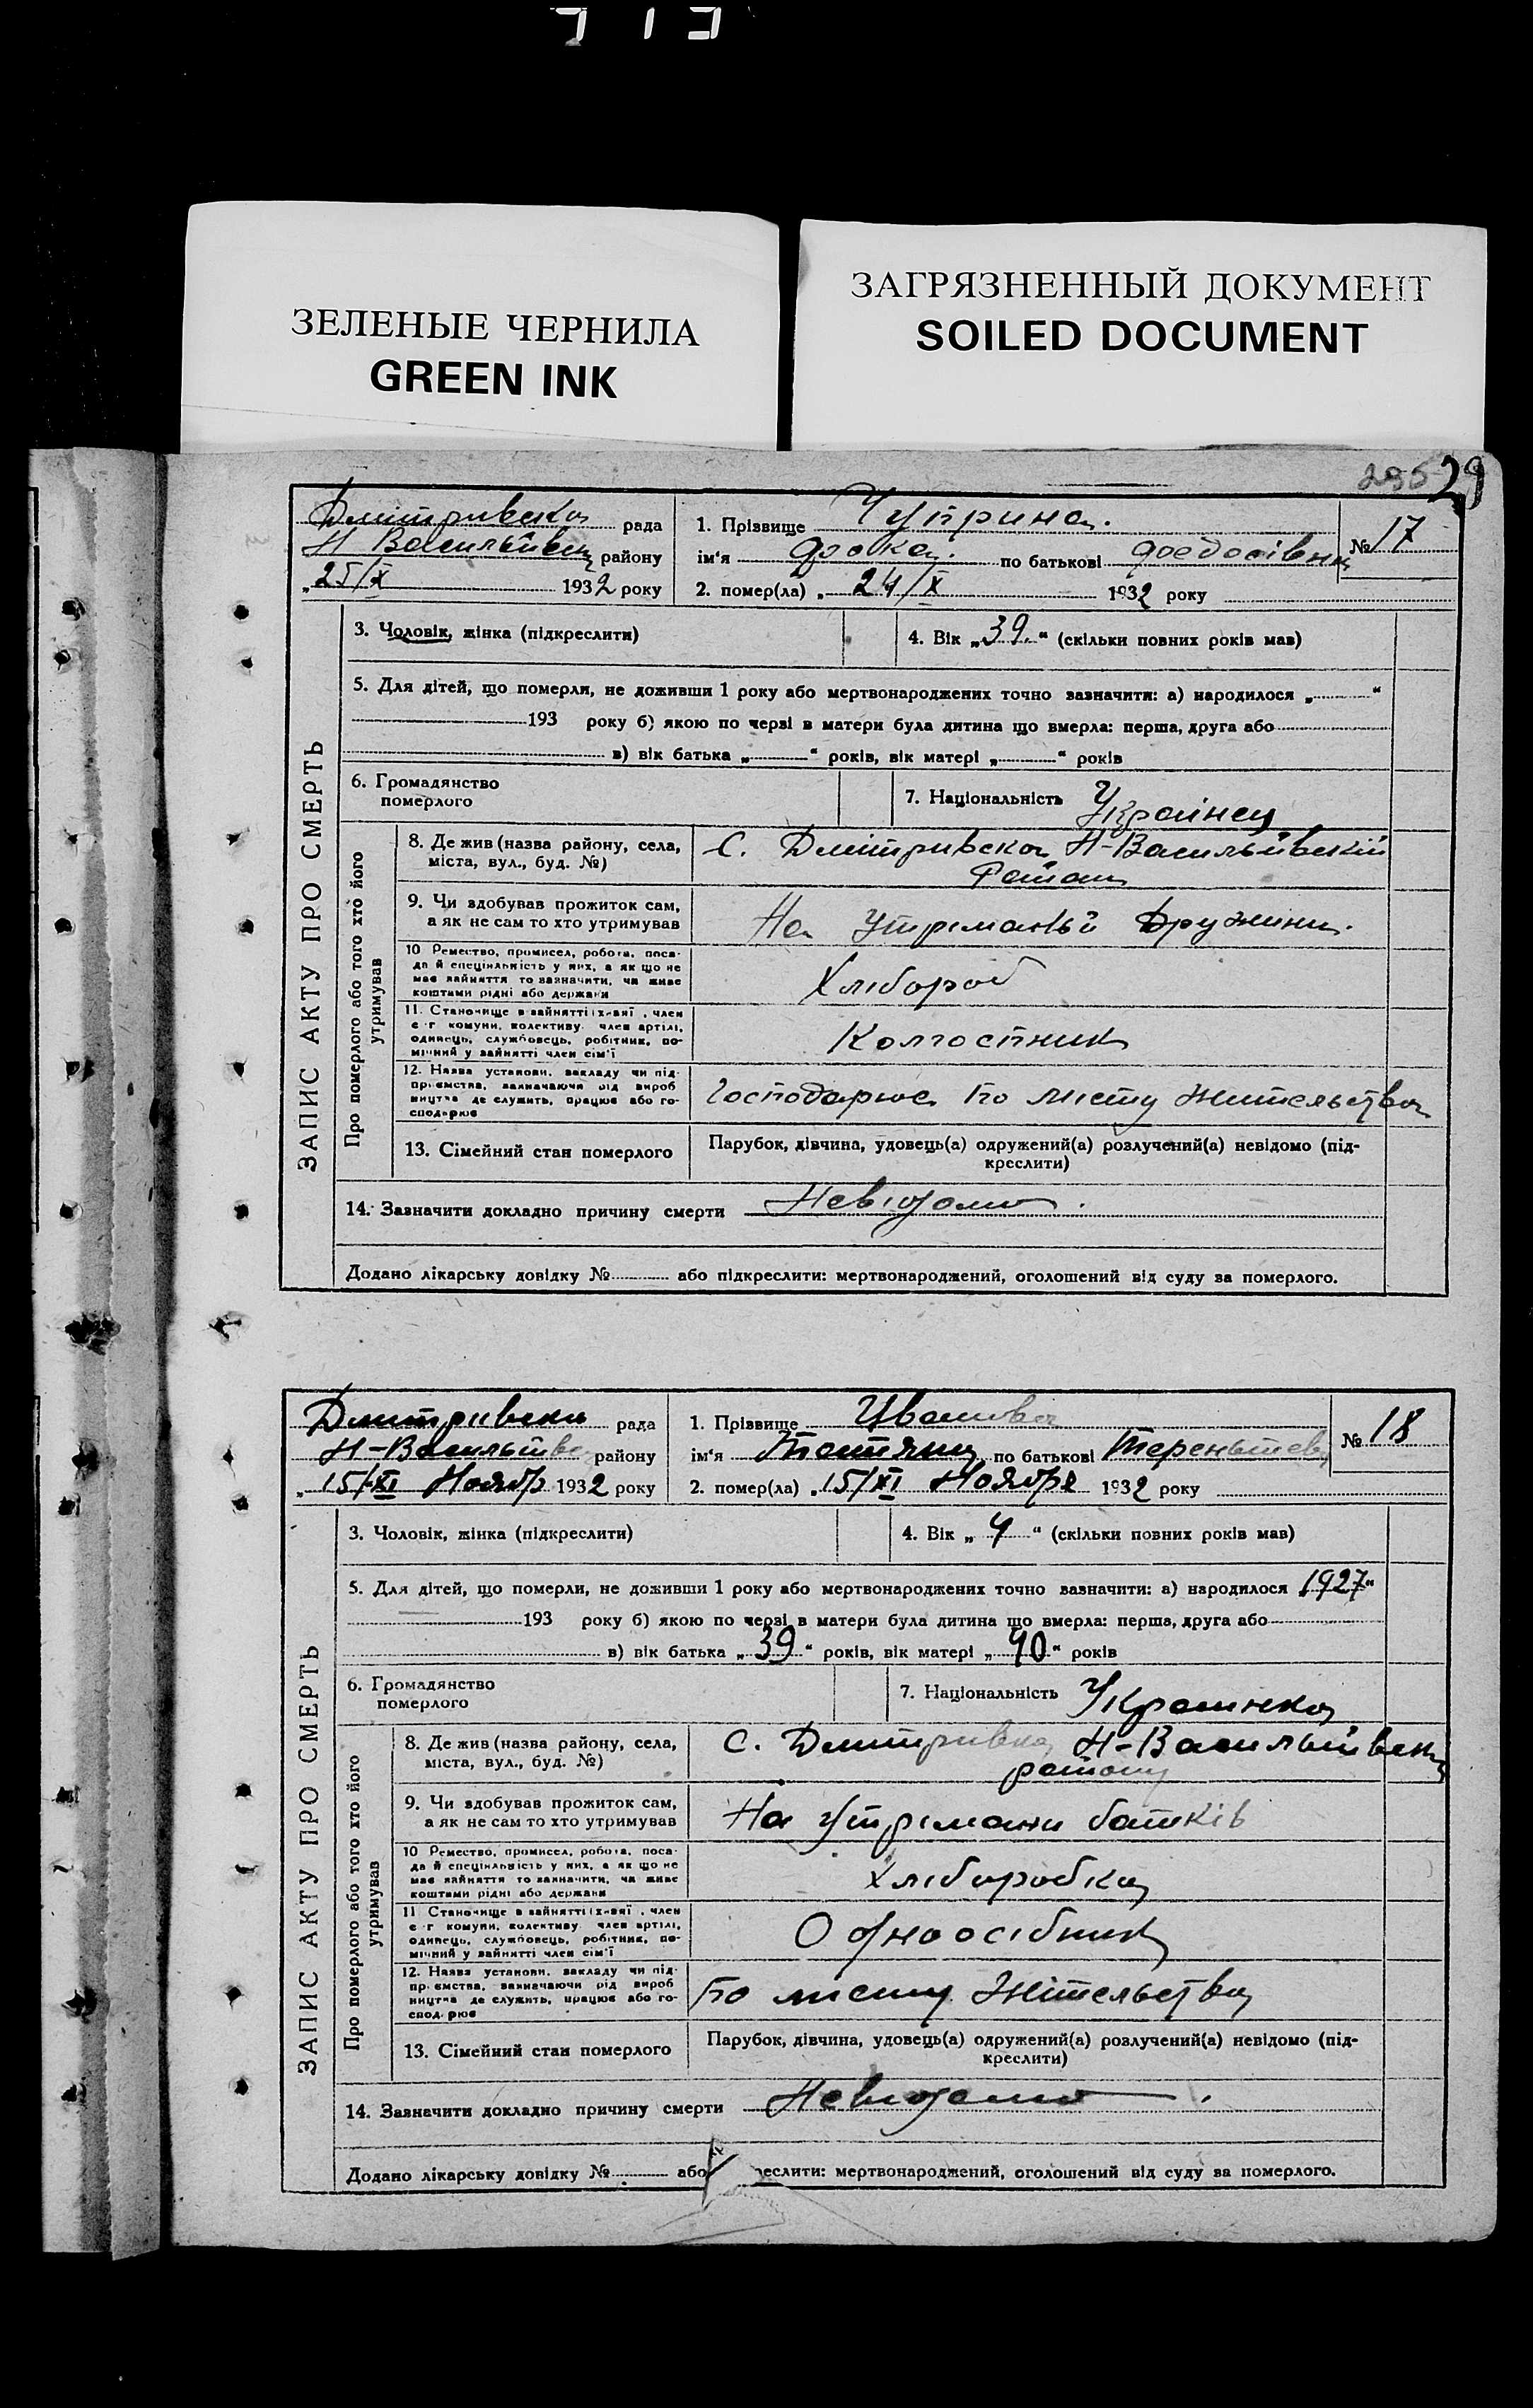 ЗЕЛЕНЫЕ ЧЕРНИЛА
GREEN INK
ЗАГРЯЗНЕННЫЙ ДОКУМЕНТ
SOILED DOCUMENT
29
Дмітрівска рада
Н Васильївськ району
„25/X 1932 року
1. Прізвище Чуприна.
ім'я по батькові
2. помер(ла) „ 24/X 1932 року
№ 17
ЗАПИС АКТУ ПРО СМЕРТЬ
3. Чоловік, жінка (підкреслити)
4. Вік „39.“ (скільки повних років мав)
5. Для дітей, що померли, не доживши 1 року або мертвонароджених точно зазначити: а) народилося „ “
193 року б) якою по черзі в матери була дитина що вмерла: перша, друга або
в) вік батька „ “ років, вік матері „ “ років
6. Громадянство
померлого
7. Національність Українец
Про померлого або того хто його
утримував
8. Де жив (назва району, села,
міста, вул., буд. №)
С. Дмітрівска Н-Васильївський
9. Чи здобував прожиток сам,
а як не сам то хто утримував
На утріманьи Дружини.
10 Ремество, промисел, робота, поса-
да й спеціяльність у них, а як що не
має зайняття то зазначити, чи живе
коштами рідні або держави
Хлібороб
11. Становище в зайнятті член
с-г комуни, колективу член артілі,
одинець, службовець, робітник, по-
мічний у зайнятті член сім'ї
Колгоспник
12. Назва установи, закладу чи під-
приємства, зазначаючи рід вироб
ництва де служить, працює або го-
сподарює
Господарює по місту жительства
13. Сімейний стан померлого
Парубок, дівчина, удовець(а) одружений(а) розлучений(а) невідомо (під-
креслити)
14. Зазначити докладно причину смерти Невідомо.
Додано лікарську довідку № або підкреслити: мертвонароджений, оголошений від суду за померлого.
Дмитрівска рада
Н-Васильївс району
„ 15/XI Ноябр 1932 року
1. Прізвище Іванова
ім'я Татяна по батькові Терентьев
2. помер(ла) „15/XI Ноября 1932 року
№ 18
ЗАПИС АКТУ ПРО СМЕРТЬ
3. Чоловік, жінка (підкреслити)
4. Вік „ 4 “ (скільки повних років мав)
5. Для дітей, що померли, не доживши 1 року або мертвонароджених точно зазначити: а) народилося 1927“
193 року б) якою по черзі в матери була дитина що вмерла: перша, друга або
в) вік батька „39“ років, вік матері „40“ років
6. Громадянство
померлого
7. Національність Украинка
Про померлого або того хто його
утримував
8. Де жив (назва району, села,
міста, вул., буд. №)
С. Дмитрівка Н-Васильївськ
району
9. Чи здобував прожиток сам,
а як не сам то хто утримував
На утрімани батьків
10 Ремество, промисел, робота, поса-
да й спеціяльність у них, а як що не
має зайняття то зазначити, чи живе
коштами рідні або держави
Хліборобка
11 Становище в зайнятті член
с-г комуни, колективу член артілі,
одинець, службовець, робітник, по-
мічний у зайнятті член сім'ї
Одноосібник
12. Назва установи, закладу чи під-
приємства, зазначаючи рід вироб
ництва де служить, працює або го-
сподарює
По місту Жітельства
13. Сімейний стан померлого
Парубок, дівчина, удовець(а) одружений(а) розлучений(а) невідомо (під-
креслити)
14. Зазначити докладно причину смерти Невідомо.
Додано лікарську довідку № або реслити: мертвонароджений, оголошений від суду за померлого.